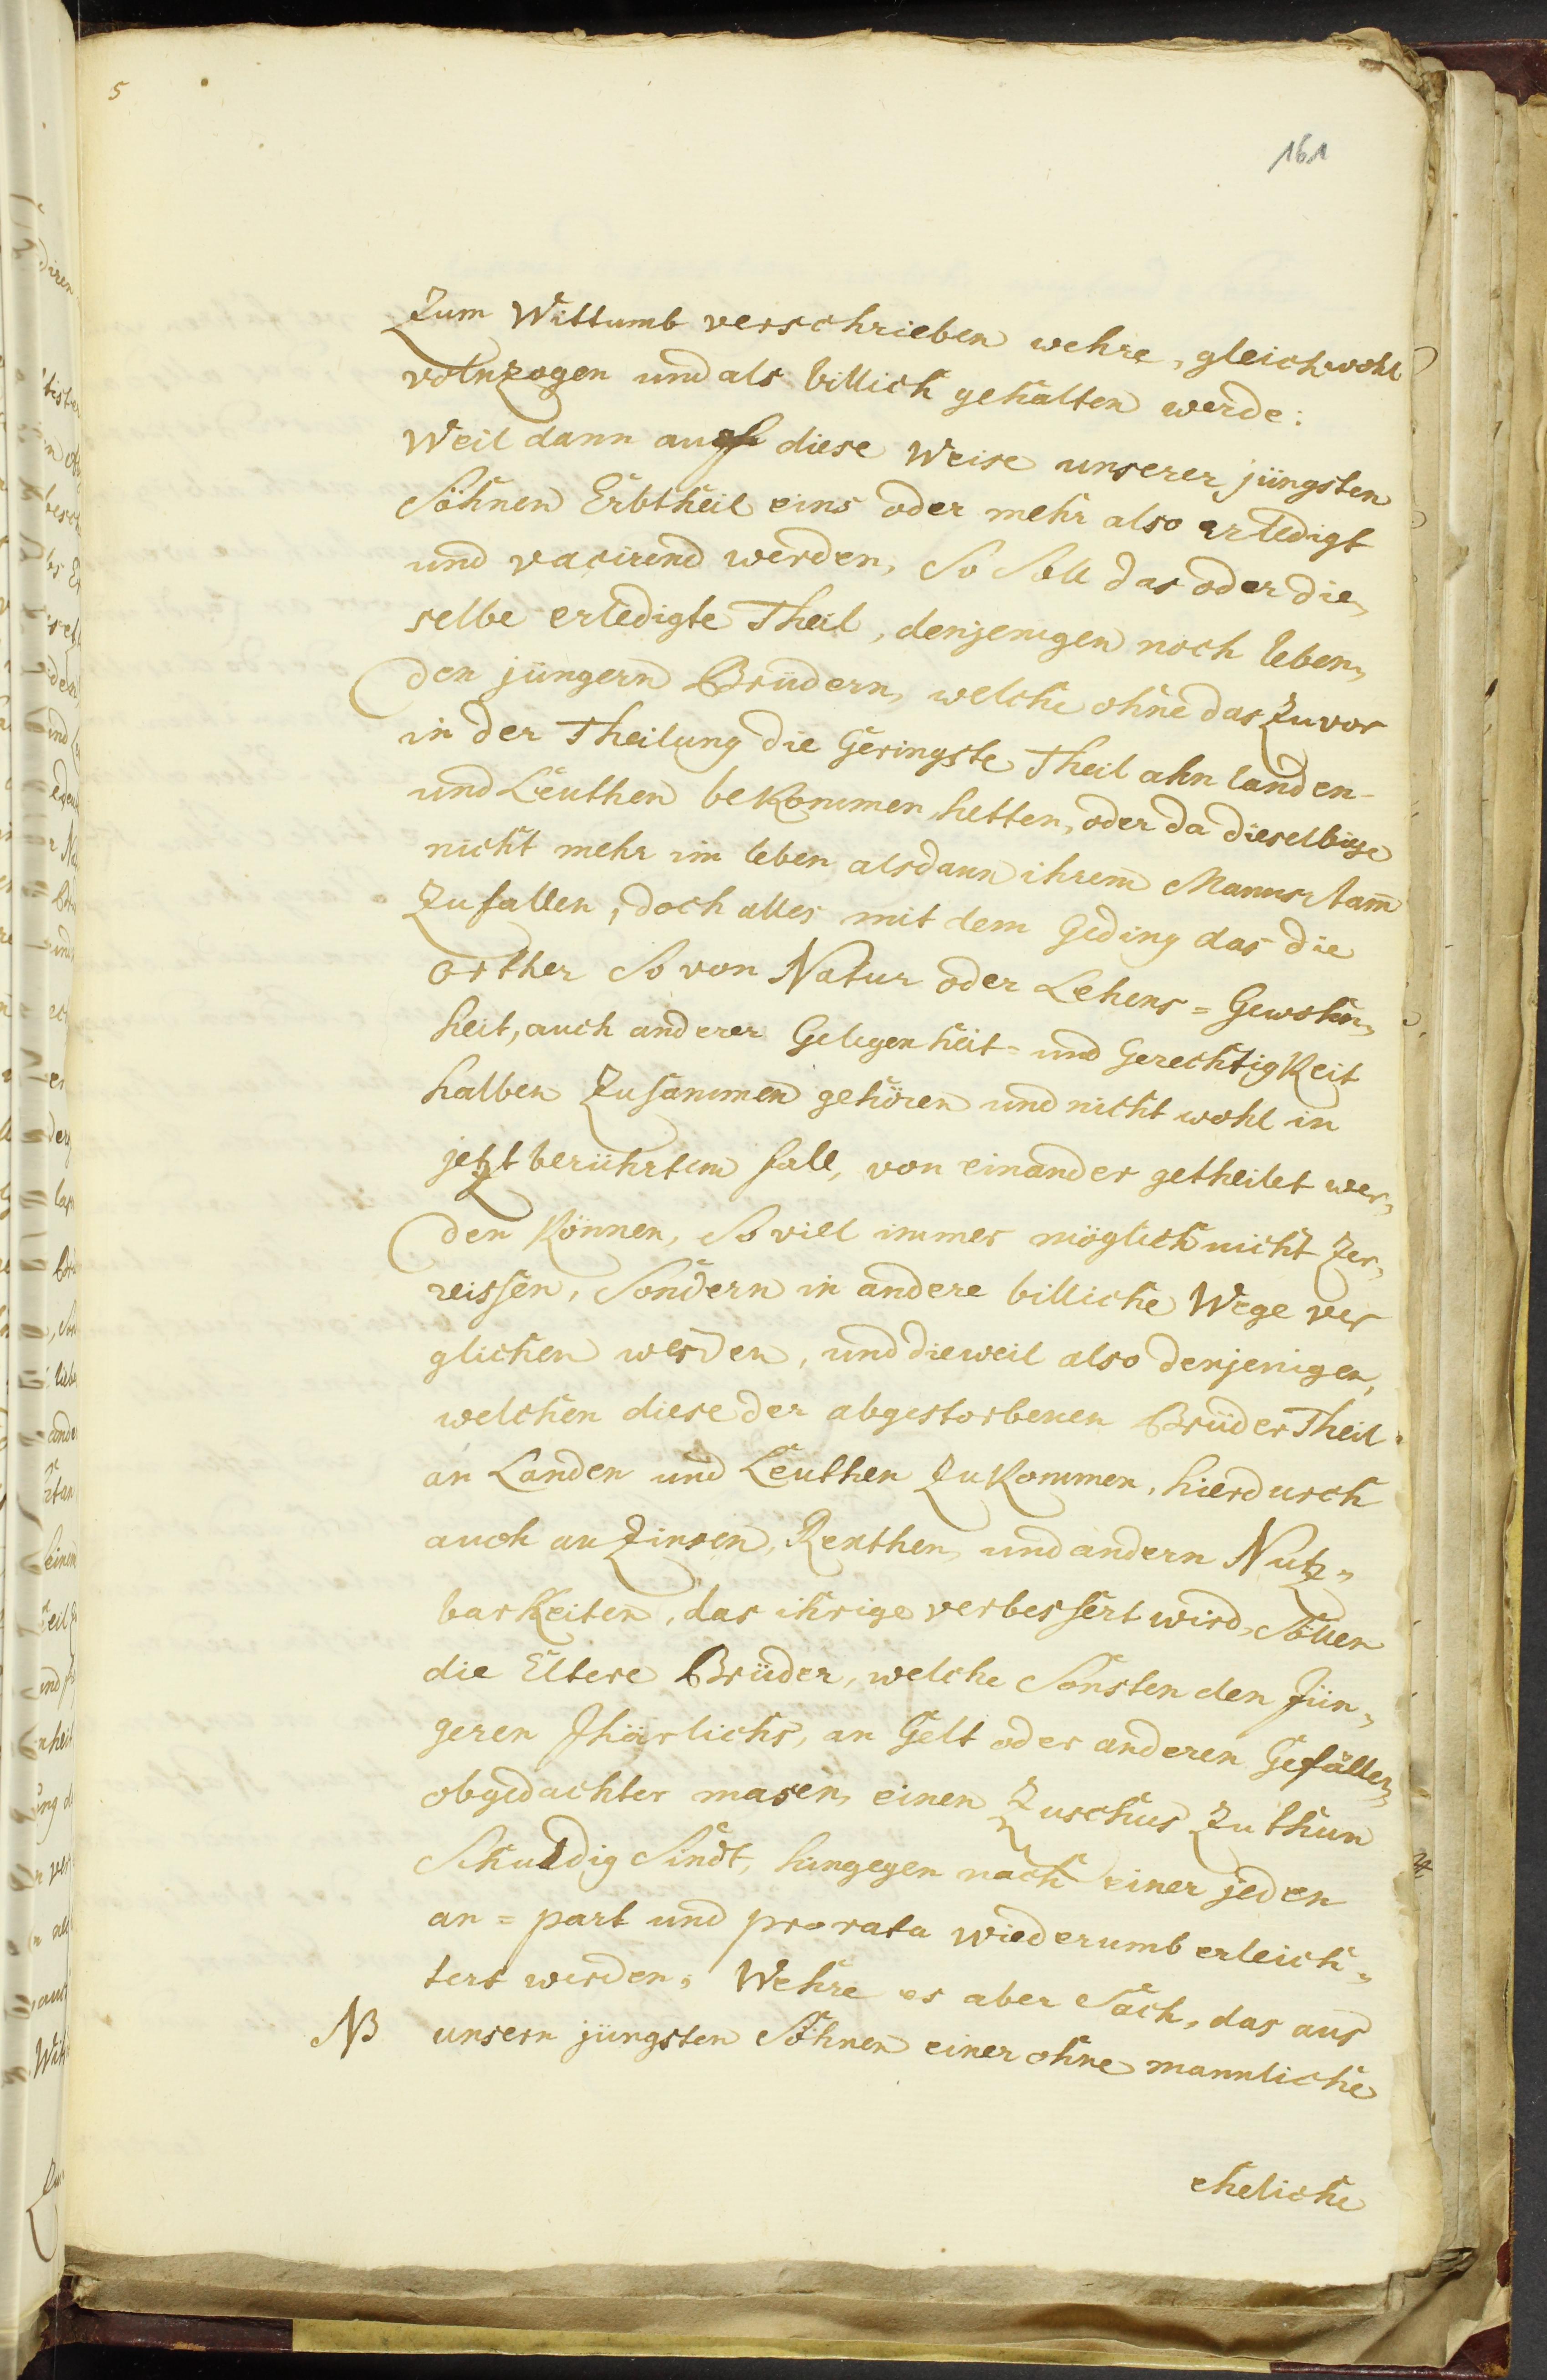 5
161
Zum Wittumb verschrieben wehre, gleichwohl
volnzogen und als billich gehalten werde:
Weil dann auf diese Weise unserer jüngsten
Söhnen Erbtheil eins oder mehr also erledigt
und vacirend werden, So Soll das oder die„
selbe erledigte Theil, denjenigen noch leben„
den jüngern Brüdern, welche ohne das Zuvor
in der Theilung die Geringste Theil ahn landen-
und Leuthen bekommen hetten, oder da dieselbige
nicht mehr im leben alsdann ihrem Manns Stam̄
Zufallen, doch alles mit dem Geding das die
örther So von Natur oder Lehens=Gewohn„
heit, auch anderer Gelegenheit= und Gerechtigkeit
halben Zusammen gehören und nicht wohl in
jetzt berührtem fall, von einander getheilet wer„
den Können, So viel immer möglich nicht Zer„
reissen, Sondern in andere billiche Wege ver
glichen werden, und dieweil also denjenigen,
welchen diese der abgestorbenen Brüder Theil
an Landen und Leuthen Zukommen, hierdurch
auch an Zinsen, Renthen und andern Nutz„
barkeiten, das ihrige verbessert wird, Söllen
die Eltere Brüder, welche Sonsten den Jün„
geren Jhärlichs, an Gelt oder anderen Gefällen,
obgedachter masen, einen Zuschus Zu thun
Schuldig Sindt, hingegen nach einer jeden
an=part und pro rata wiederumb erleich„
tert werden, Wehre es aber Sach, das aus
NB unsern jüngsten Söhnen einer ohne mannliche
eheliche